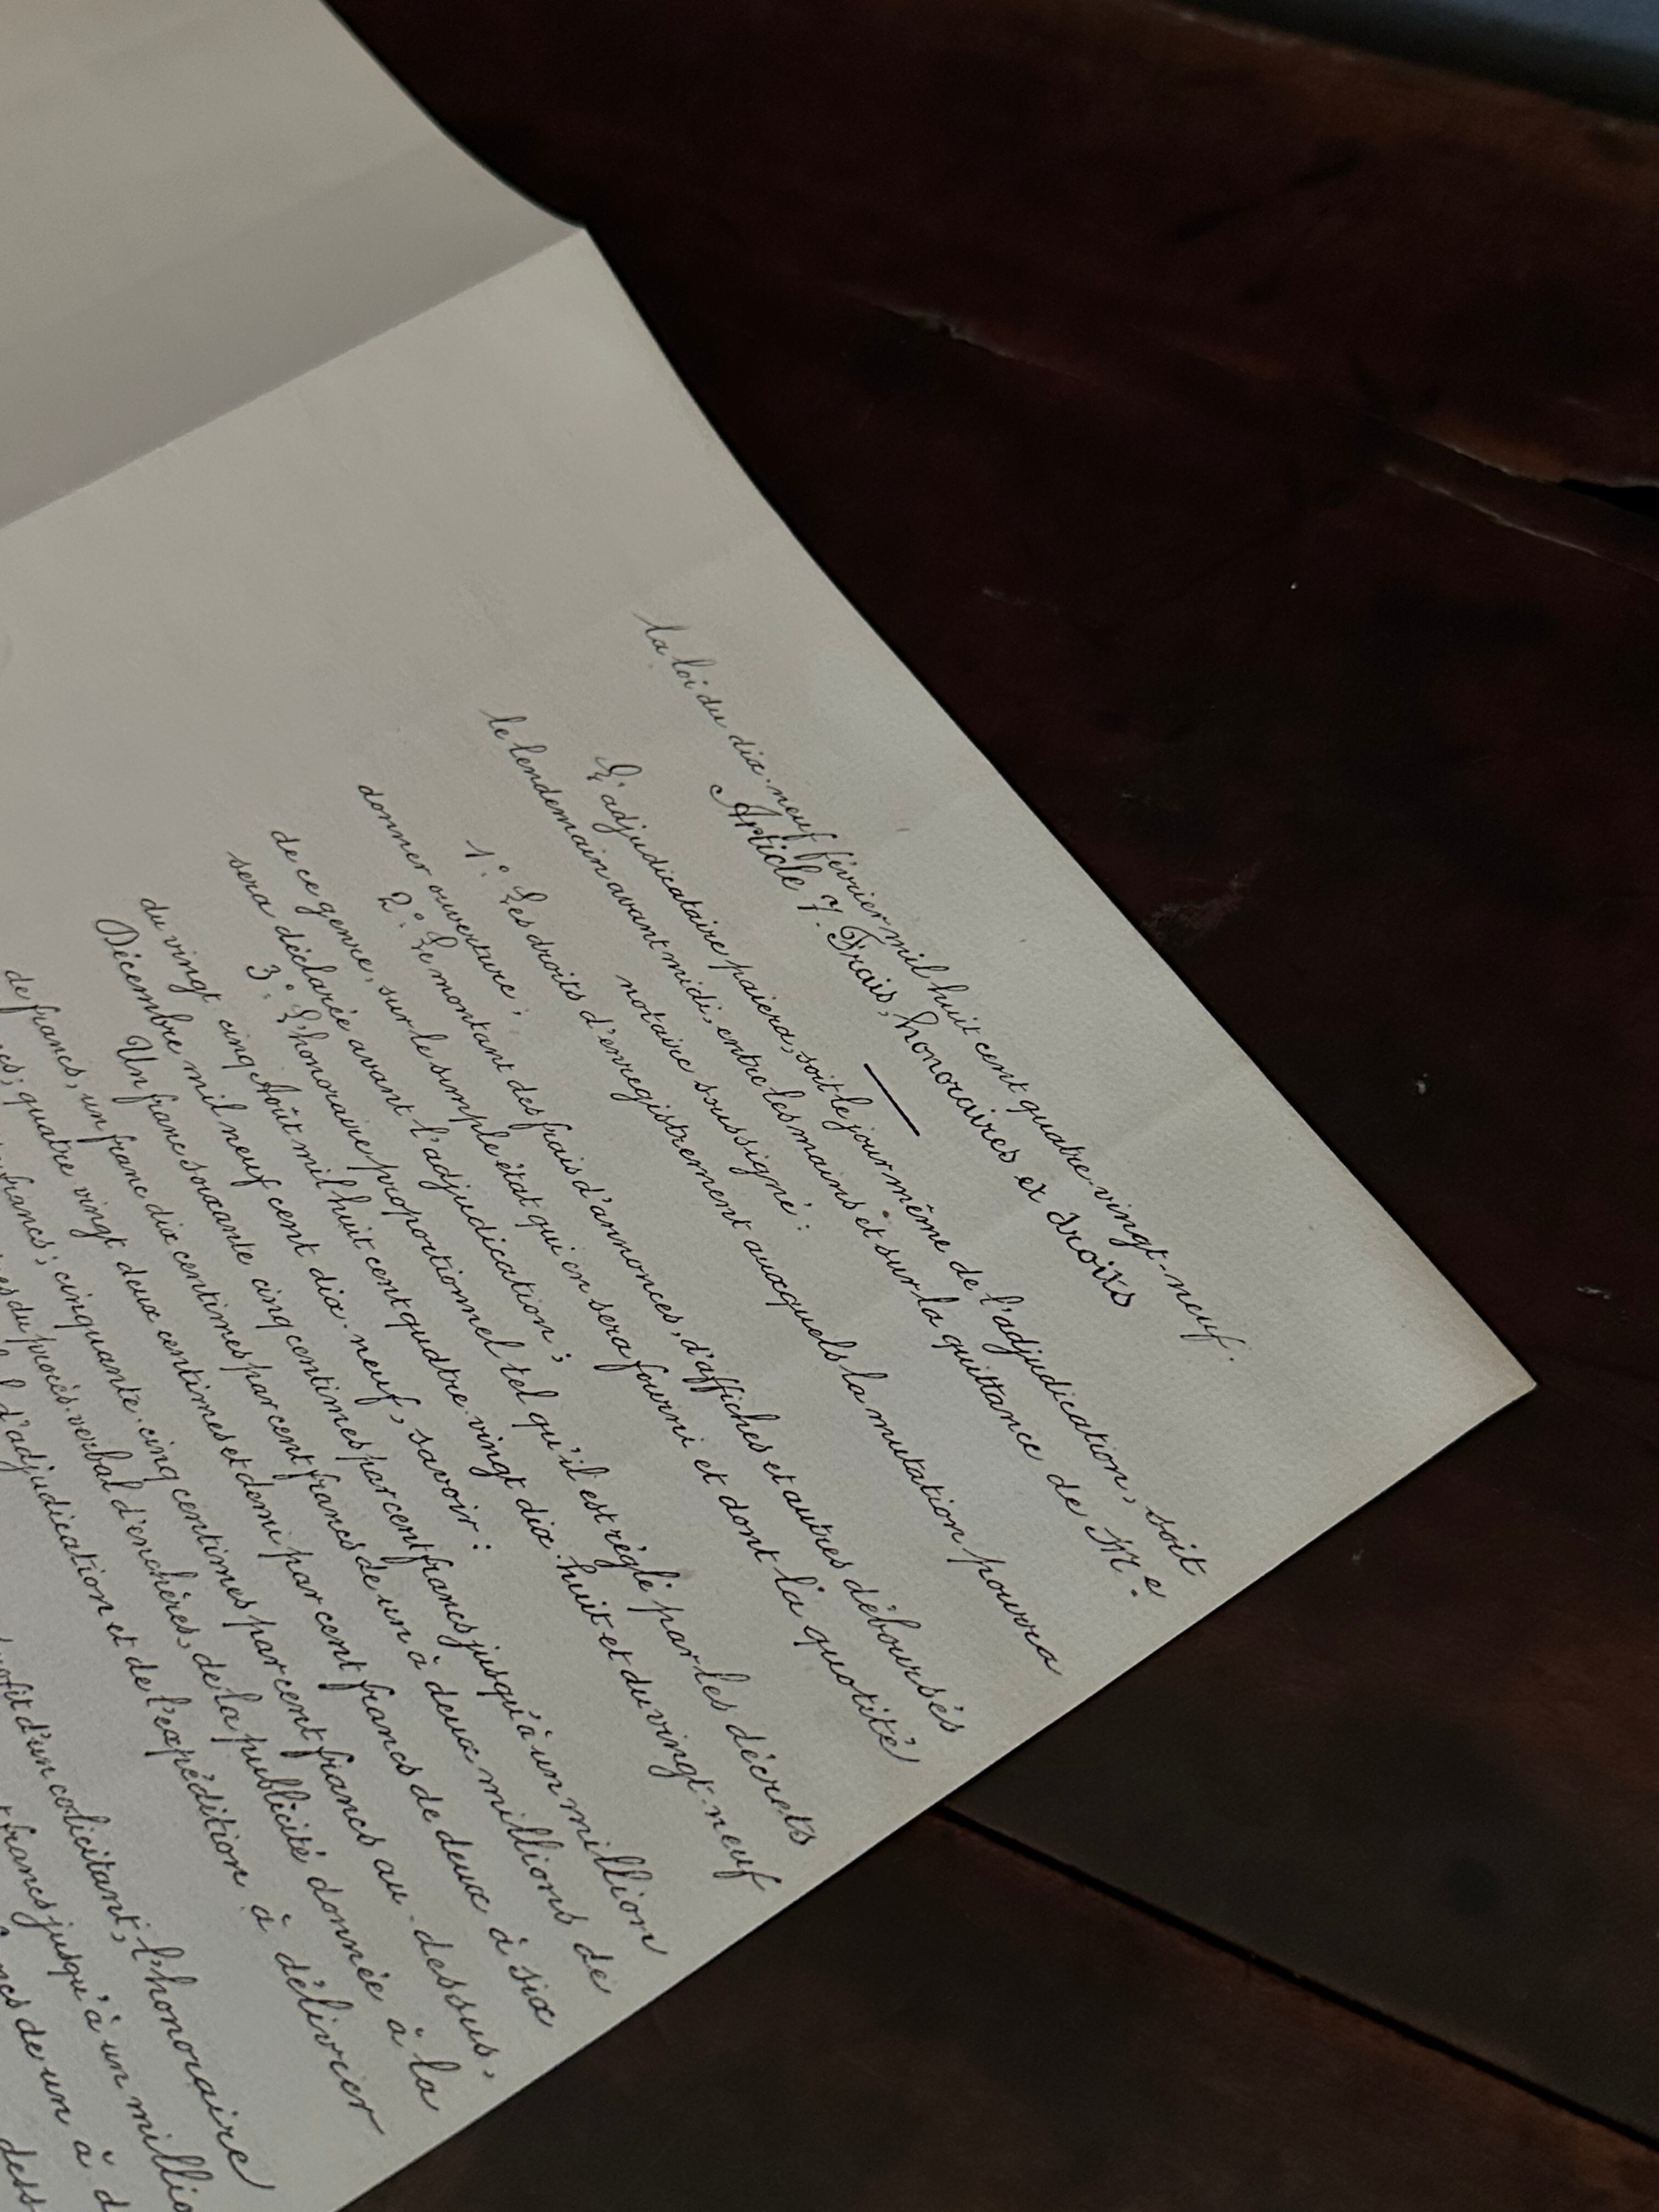 la loi du dix-neuf février mil huit cent quatre-vingt-neuf.
Article 7. Frais, honoraires et droits
L'adjudicataire paiera, soit le jour même de l'adjudication, soit
le lendemain avant midi, entre les mains et sur la quittance de Me
notaire soussigné:
1° Les droits d'enregistrement auxquels la mutation pourra
donner ouverture;
2° Le montant des frais d'annonces, d'affiches et autres déboursés
de ce genre, sur le simple état qui en sera fourni et dont la quotité
sera déclarée avant l'adjudication;
3° L'honoraire proportionnel tel qu'il est réglé par les décrets
du vingt-cinq Août mil huit cent quatre-vingt dix-huit et du vingt-neuf
Décembre mil neuf cent dix-neuf, savoir:
Un franc soixante cinq centimes par cent francs jusqu'à un million
de francs, un franc dix centimes par cent francs de un à deux millions de
quatre vingt deux centimes et demi par cent francs de deux à six
francs; cinquante-cinq centimes par cent francs au-dessus,
du procès-verbal d'enchères, de la publicité donnée à la
d'adjudication et de l'expédition à délivrer
d'un colicitant, l'honoraire
francs jusqu'à un
de un à